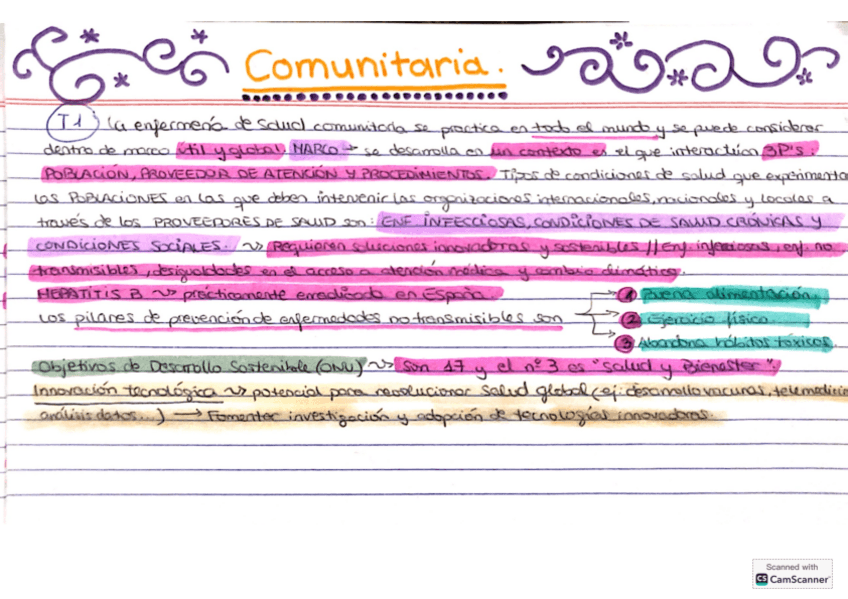 Comunitaria.
T1 La enfermería de salud comunitaria se practica en todo el mundo y se puede considerar
dentro de marco útil y global. MARCO → se desarrolla en un contexto es el que interactúan 3P's:
POBLACIÓN, PROVEEDOR DE ATENCIÓN Y PROCEDIMIENTOS. Tipos de condiciones de salud que experimenta
LAS POBLACIONES en las que deben intervenir las organizaciones internacionales, nacionales y locales a
través de los PROVEEDORES DE SALUD son: ENF INFECCIOSAS, CONDICIONES DE SALUD CRÓNICAS Y
CONDICIONES SOCIALES. ~> Requieren soluciones innovadoras y sostenibles // Enf. infecciosas, enf. no
transmisibles, desigualdades en el acceso a atención médica y cambio climático.
HEPATITIS B ~> prácticamente erradicada en España
① Buena alimentación.
Los pilares de prevención de enfermedades no transmisibles son
② Ejercicio físico
③ Abandona hábitos tóxicos.
Objetivos de Desarrollo Sostenible (ONU) ~> Son 17 y el nº 3 es "Salud y Bienestar".
Innovación tecnológica ~> potencial para revolucionar salud global (ej: desarrollo vacunas, telemedicin
análisis datos...) → Fomentar investigación y adopción de tecnologías innovadoras.
Scanned with
CS CamScanner